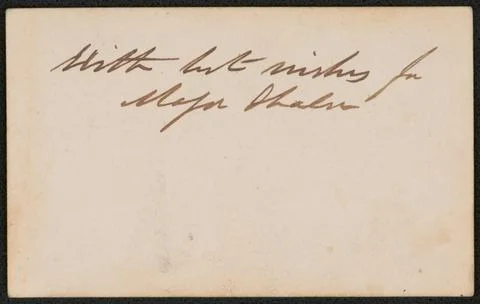 With best wishes for
Major